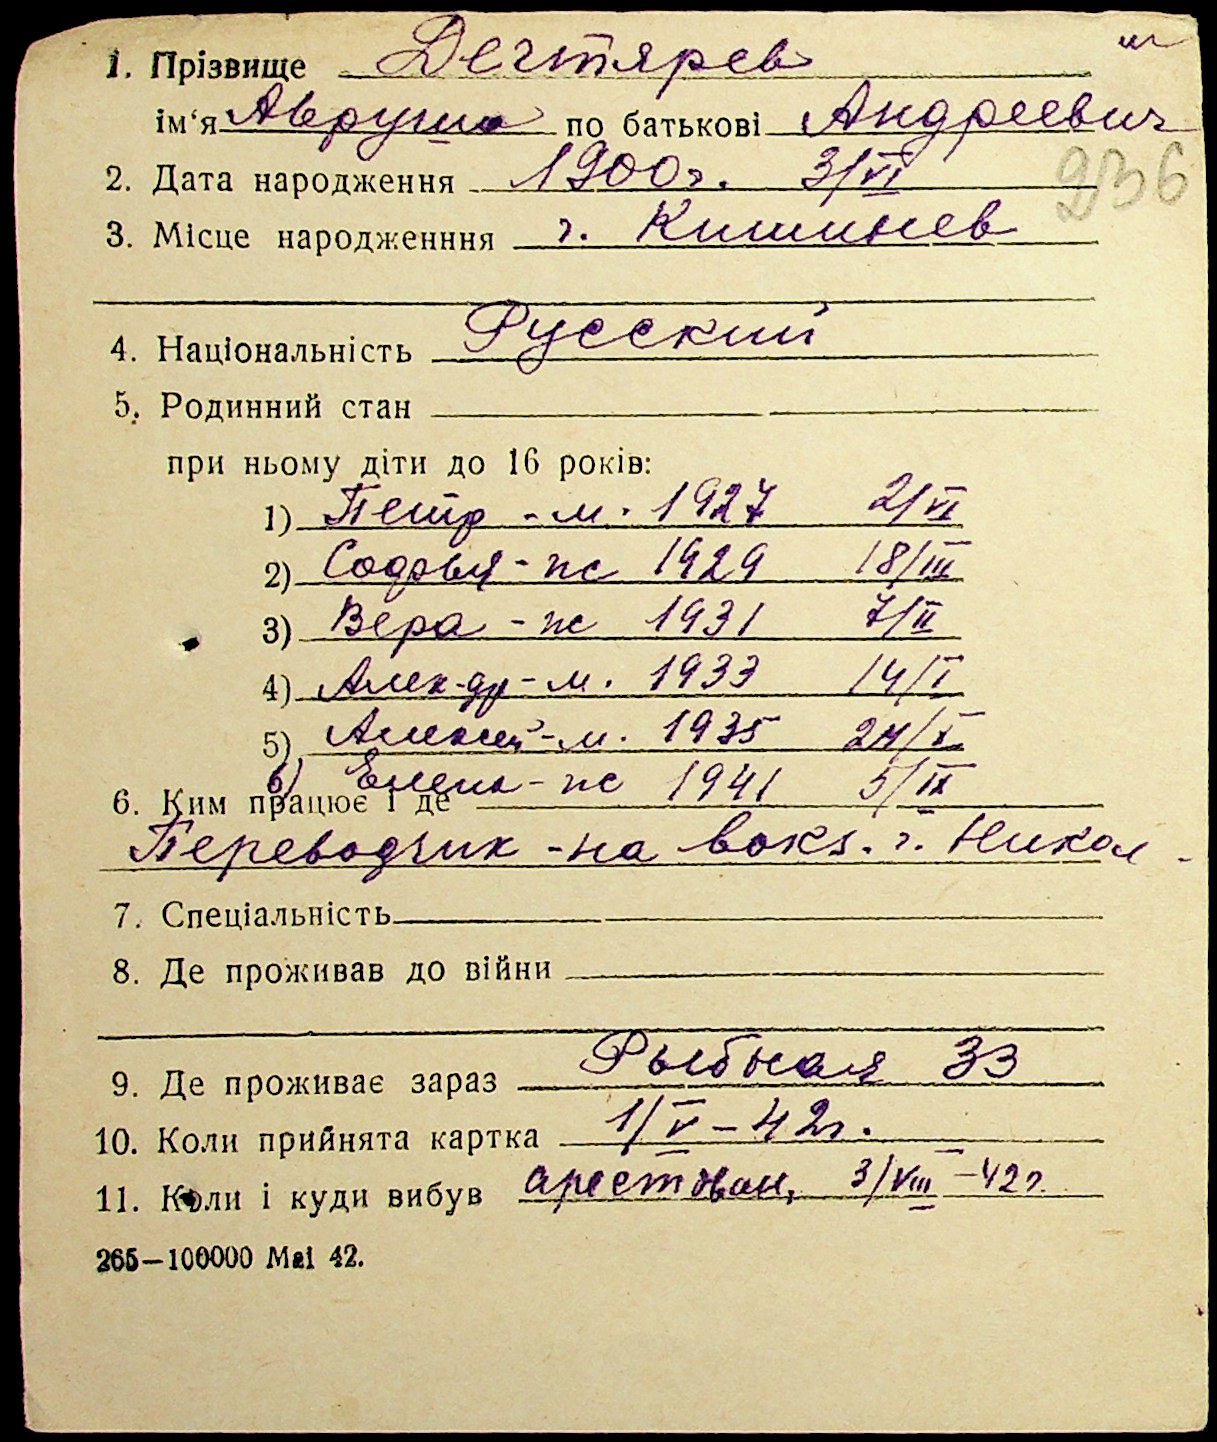 1. Прізвище Дегтярев
ім'я Авруша по батькові Андреевич
2. Дата народження 1900г. 3/VI
3. Місце народженння г. Кишинев
4. Національність Русский
5. Родинний стан
при ньому діти до 16 років:
1) Петр - м. 1927 2/VI
2) Софья - ж 1929 18/III
3) Вера - ж 1931 7/II
4) Алек-др - м. 1933 14/I
5) Алексей - м. 1935 24/X
6) Елена - ж 1941 5/IX
6. Ким працює і де
Переводчик - на вокз. г. Никол
7. Спеціальність
8. Де проживав до війни
9. Де проживає зараз Рыбная 33
10. Коли прийнята картка 1/V - 42г.
11. Коли і куди вибув арестован, 3/VIII - 42г.
265—100000 Mai 42.